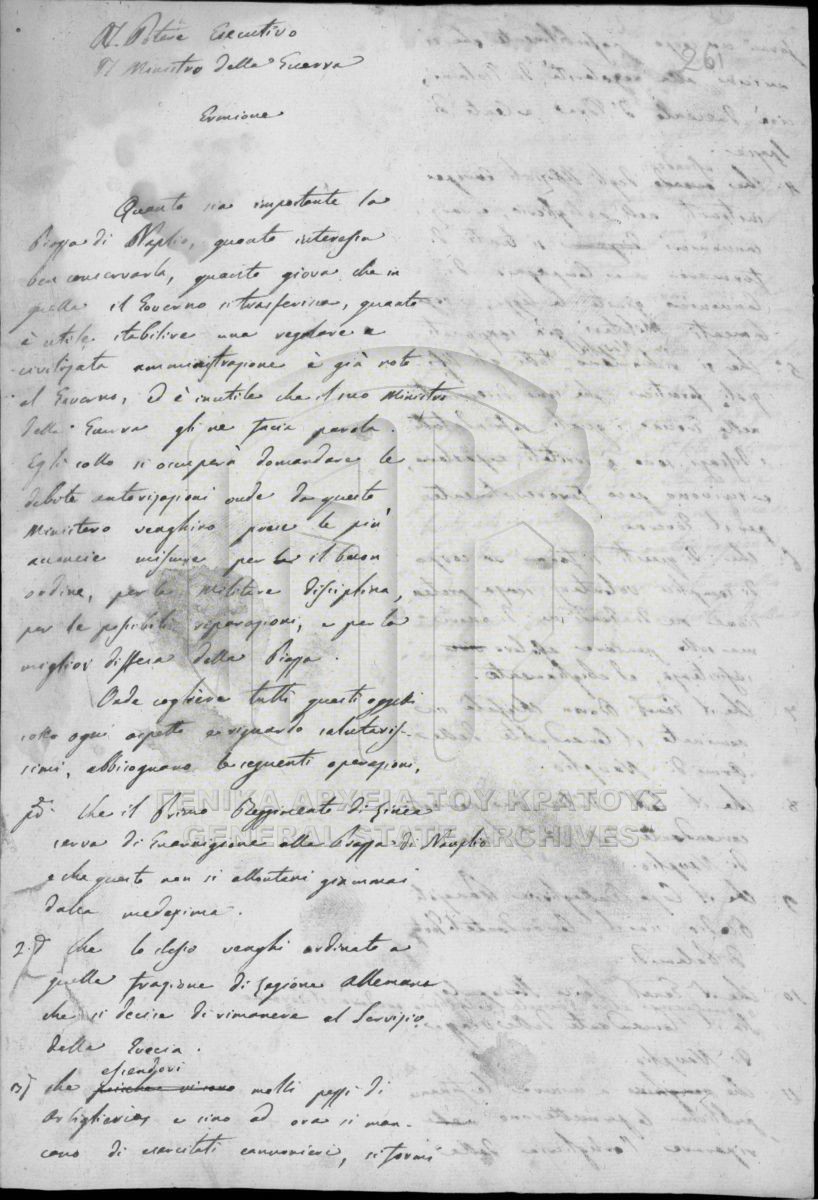 Al Potere Esecutivo
Il Ministro della Guerra
261
Ermione
Quanto sia importante la
Piazza di Naplio, quanto interessa
ben conservarla, quanto giova che in
quella il Governo si trasferisca, quanto
è utile stabilire una regolare e
civilizata amministrazione è già noto
al Governo, ed è inutile che il suo Ministro
della Guerra gli ne faccia parola.
Egli sollo si occuperà domandare le
debite autorizazioni onde da questo
Ministero venghino prese le più
misure per il buon
ordine, per la militare disciplina,
per le possivili riparazioni, e per la
miglior diffesa della Piazza.
Onde cogliere tutti questi oggetti
sotto ogni aspetto e riguardo salutaris-
simi, abbisognano le seguenti operazioni,
Che il Primo Reggimento di Linea
serva di Guarnigione alla Piazza di Nauplio
e che questo non si allontani giammai
dalla medesima.
2.º Che lo stesso venghi ordinato a
quella frazione di Legione Allemana
che si decise di rimanere al Servizio
della Grecia.
essendovi
3º che molti pezzi di
Artiglieria e sino ad ora si man-
cano di esercitati cannonieri, si formi
ΓΕΝΙΚΑ ΑΡΧΕΙΑ ΤΟΥ ΚΡΑΤΟΥΣ
GENERAL STATE ARCHIVES